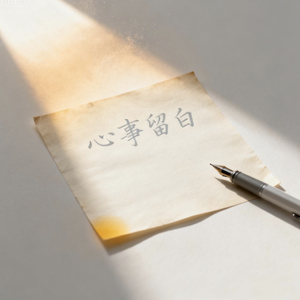 心事留白